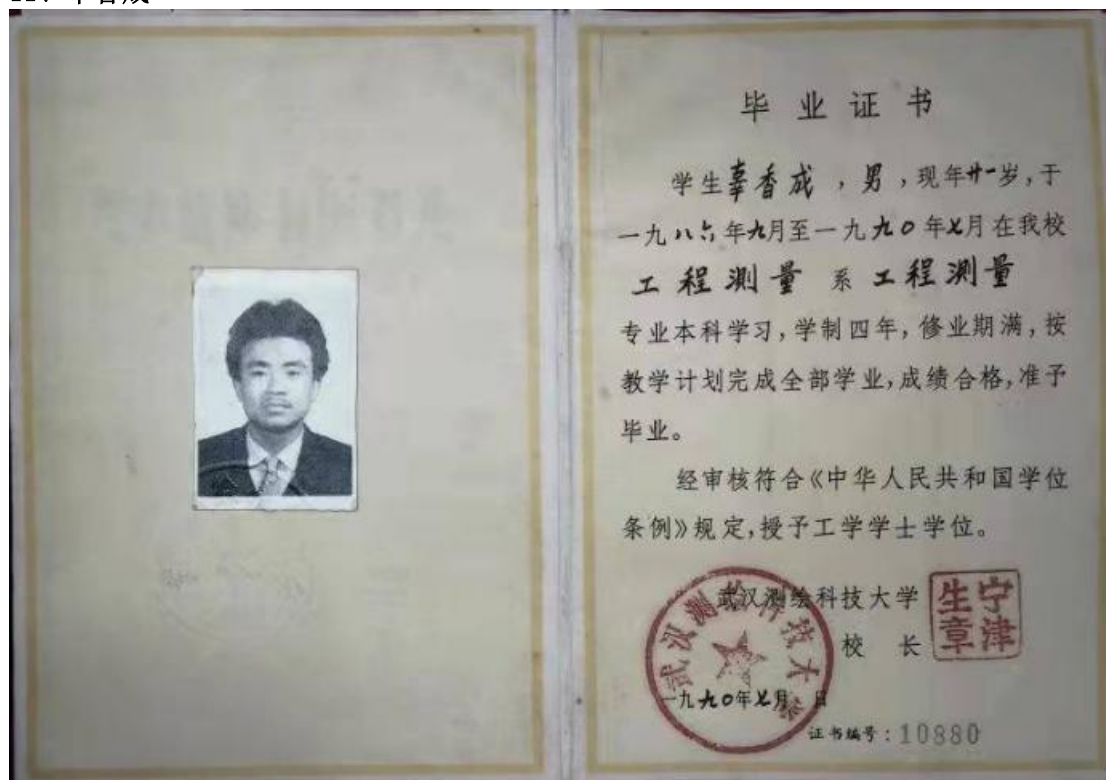 毕业证书
学生辜香成，男，现年廿一岁，于
一九八六年九月至一九九〇年七月在我校
工程测量 系 工程测量
专业本科学习，学制四年，修业期满，按
教学计划完成全部学业，成绩合格，准予
毕业。
经审核符合《中华人民共和国学位
条例》规定，授予工学学士学位。
武汉测绘科技大学
校 长
宁津生章
武汉测绘科技大学
一九九〇年七月 日
证书编号：10880